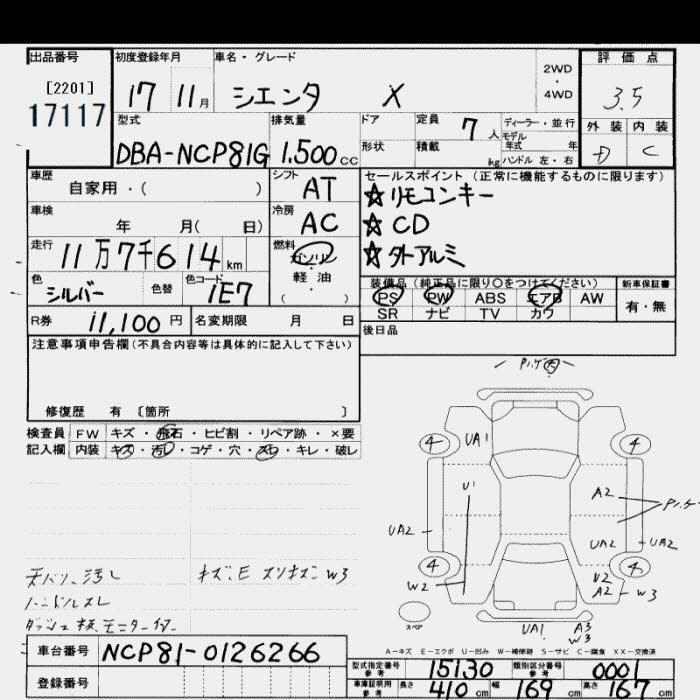 出品番号 初度登録年月 車名・グレード 評価点
[2201]
17117
17 11月 シエンタ X 2WD・4WD 3.5
外装 内装
D C
型式 排気量 ドア 定員 7人 ディーラー・並行
DBA-NCP81G 1.500cc 形状 積載 kg モデル年式 年 ハンドル 左・右
車歴 自家用・( ) シフト AT
車検 年 月( 日) 冷房 AC
走行 11万7千614km 燃料 ガソリン・軽油 ( )
色 シルバー 色替 色コード 1E7
R券 11,100円 名変期限 月 日
セールスポイント(正常に機能するものに限ります)
☆リモコンキー
☆CD
☆外アルミ
装備品(純正品に限り○をつけてください) 新車保証書
PS PW ABS エアB AW 有・無
SR ナビ TV カワ
後日品
注意事項申告欄(不具合内容等は具体的に記入して下さい)
修復歴 有 〔箇所 〕
検査員記入欄 FW キズ・飛石・ヒビ割・リペア跡・×要
内装 キズ・汚レ・コゲ・穴・スレ・キレ・破レ
天バリ汚レ キズ.E スリキズ W3
ハンドルスレ
ダッシュ板モニター
4 UA1 4
U1 A2
UA2 UA2 UA2
4 W2 U2 4
A2 W3
スペア UA1 A3
W3
A-キズ E-エクボ U-凹み W-補修跡 S-サビ C-腐食 XX-交換済
車台番号 NCP81-0126266
登録番号
型式指定番号 参考 15130 類別区分番号 参考 0001
車庫証明用 参考 長さ 410cm 幅 169cm 高さ 167cm